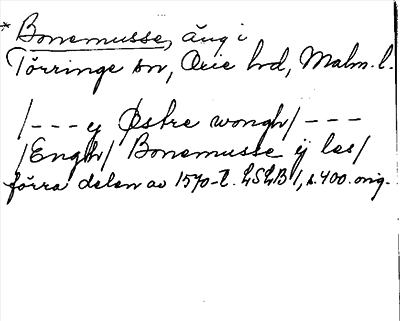 * Bonemusse, äng i
Törringe sn, Oxie hd, Malm. l.
/--- y Østre wongh/ ---
/Engh/ Bonemusse ij les/
förra delen av 1570-t. LSLB 1, s. 400. orig.